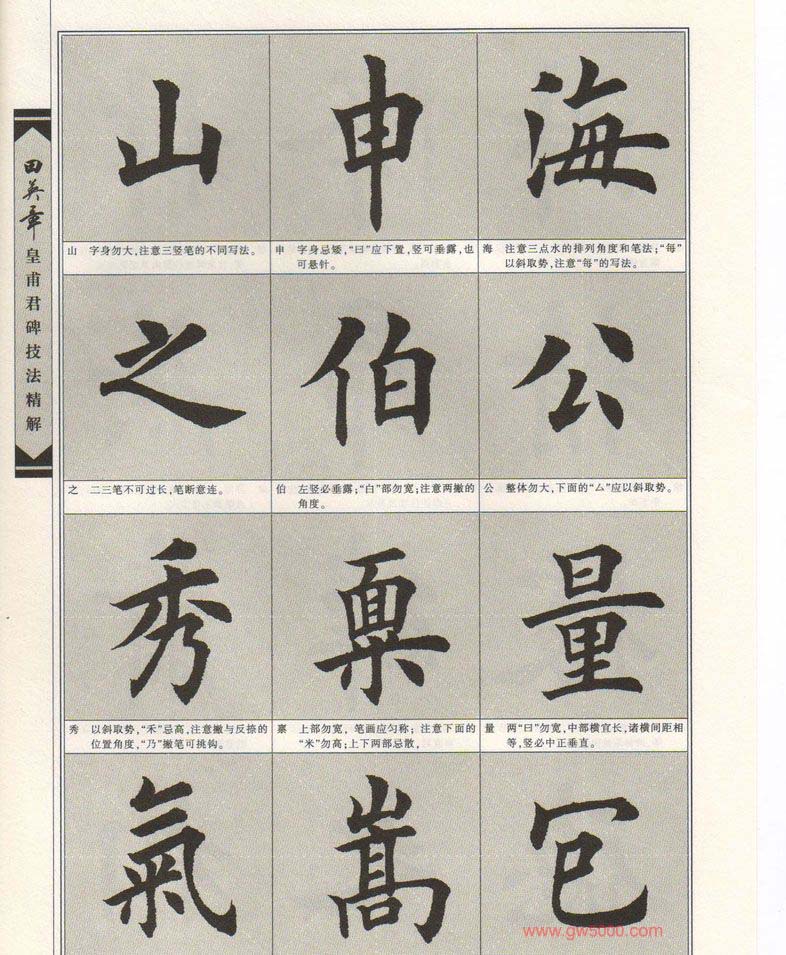 田英章 皇甫君碑技法精解
山 申 海
山 字身勿大，注意三竖笔的不同写法。
申 字身忌矮，“曰”应下置，竖可垂露，也
可悬针。
海 注意三点水的排列角度和笔法；“每”
以斜取势，注意“每”的写法。
之 伯 公
之 二三笔不可过长，笔断意连。
伯 左竖必垂露；“白”部勿宽；注意两撇的
角度。
公 整体勿大，下面的“厶”应以斜取势。
秀 禀 量
秀 以斜取势，“禾”忌高，注意撇与反捺的
位置角度，“乃”撇笔可挑钩。
禀 上部勿宽，笔画应匀称；注意下面的
“米”勿高；上下两部忌散，
量 两“曰”勿宽，中部横宜长，诸横间距相
等，竖必中正垂直。
氣 嵩 包
www.gw5000.com